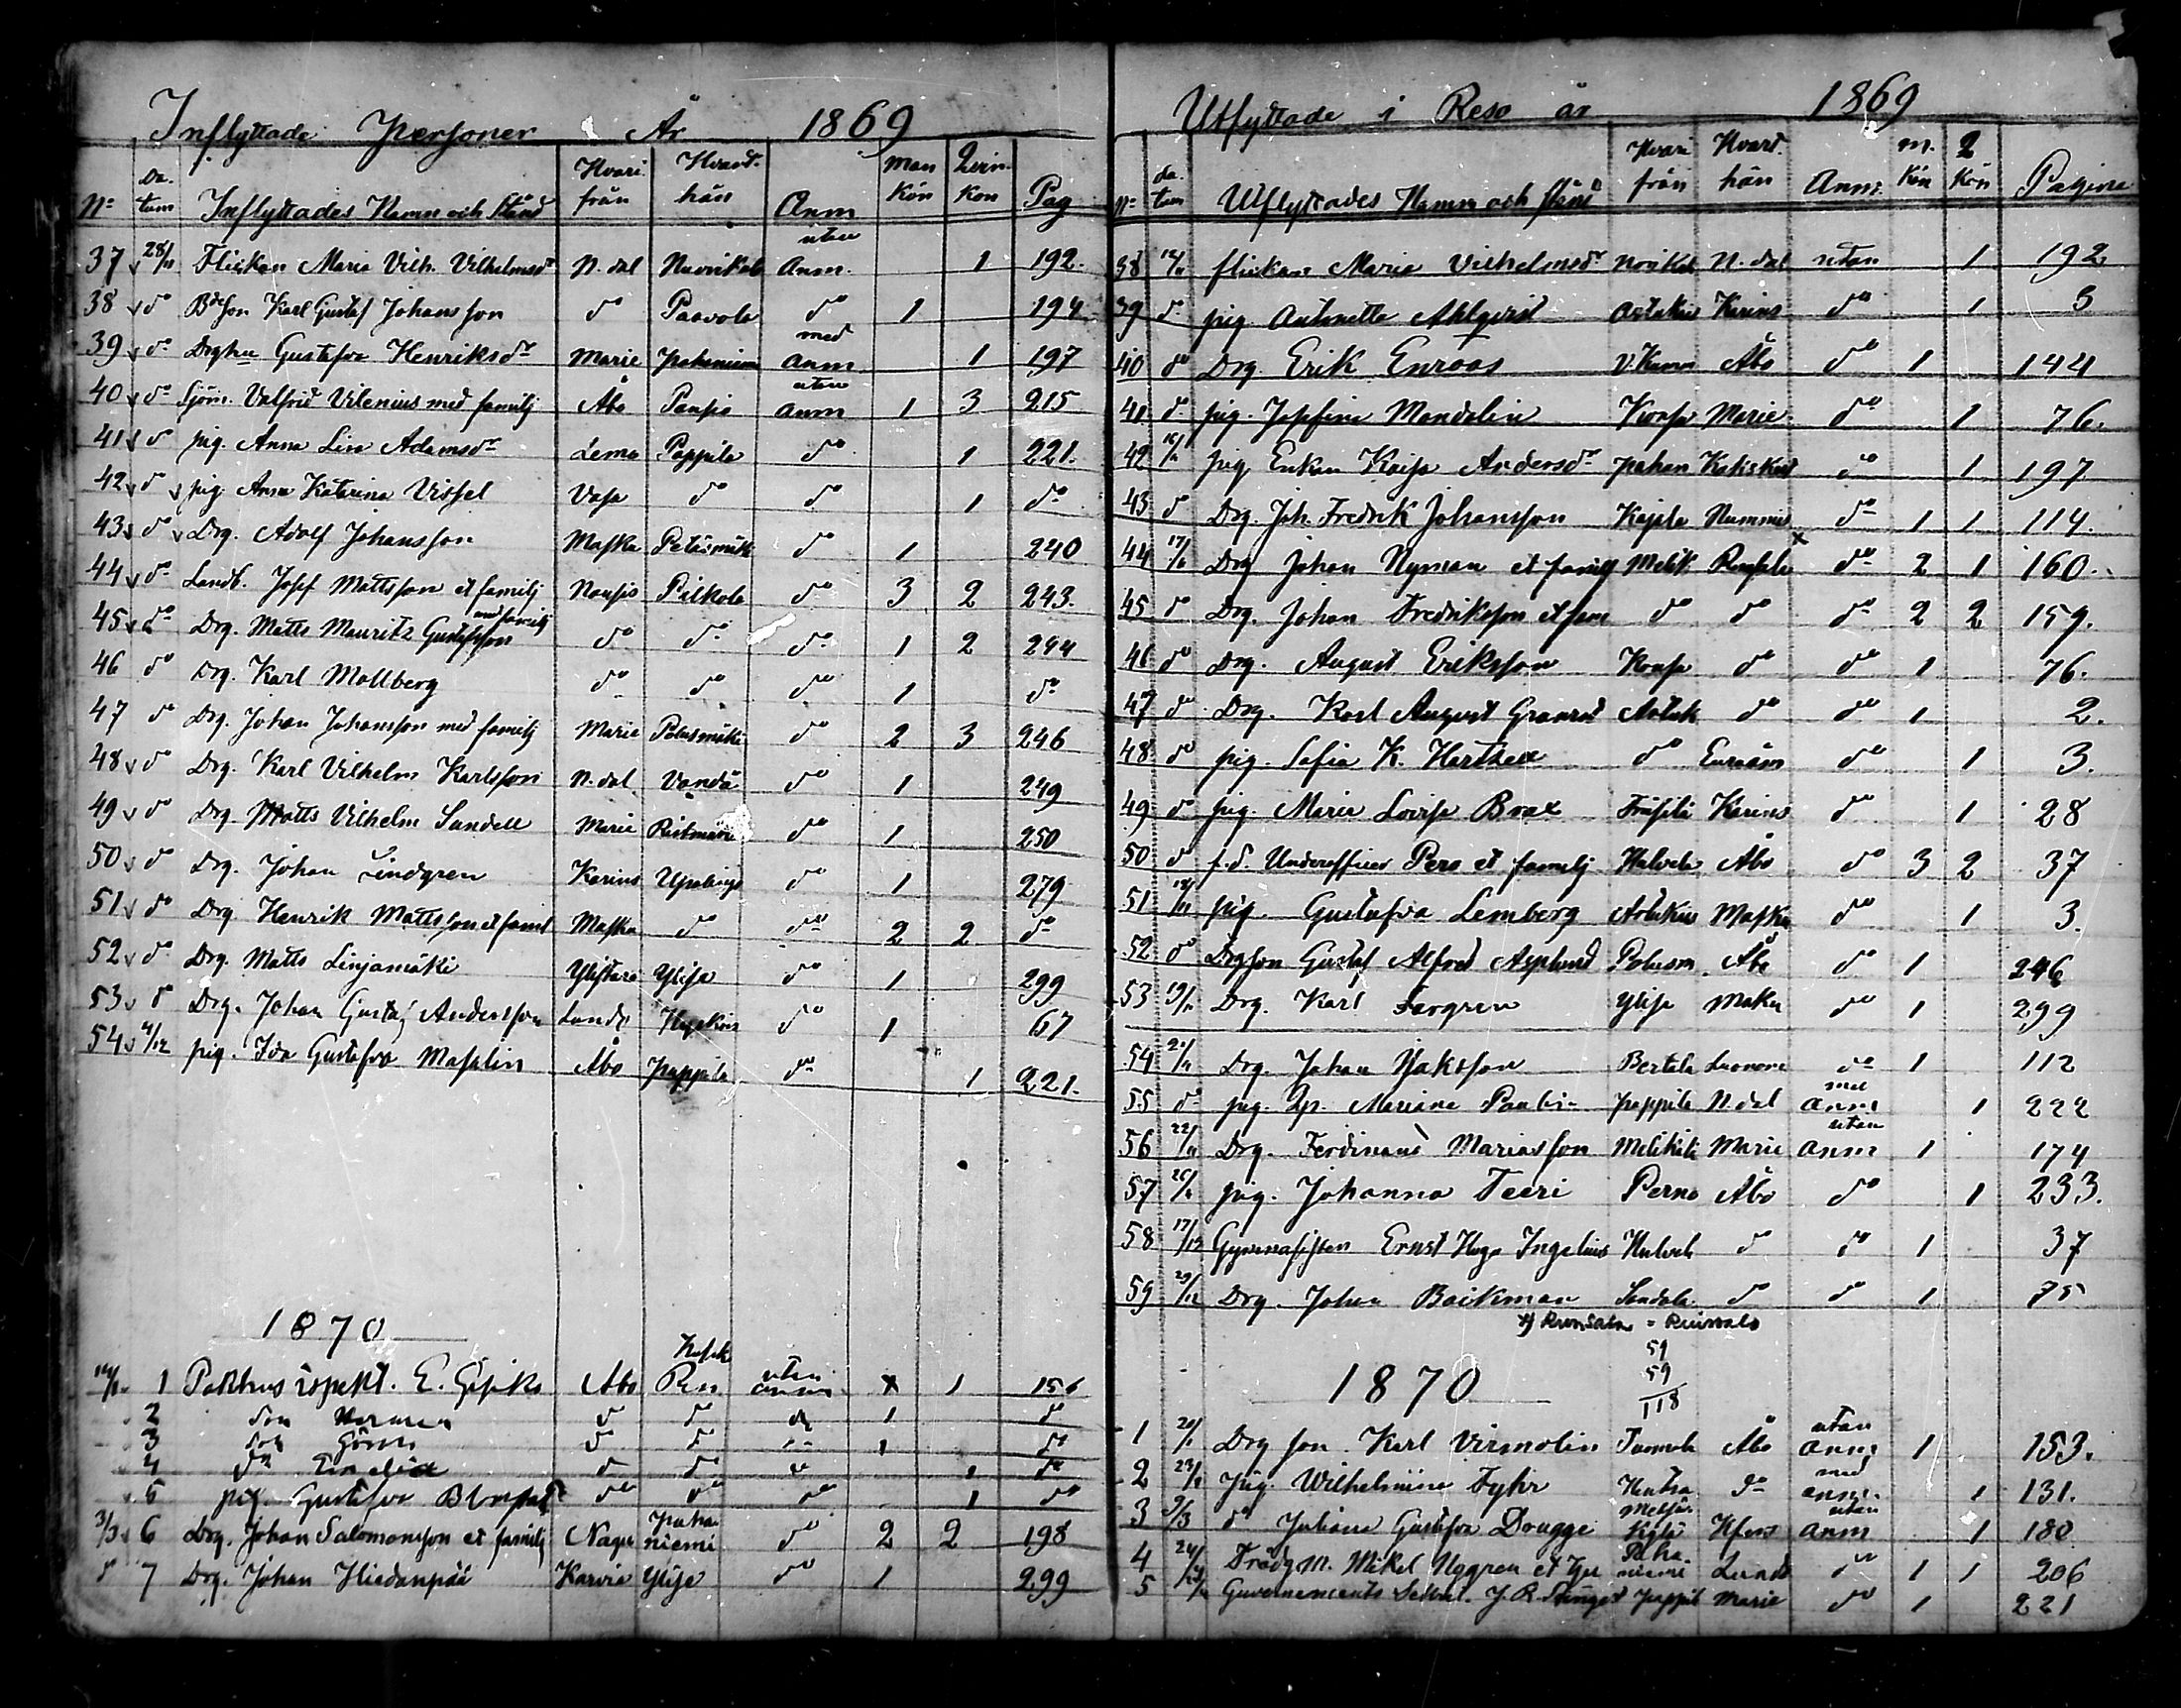 Inflyttade Personer År 1869
No Datum Inflyttades Namn och Stånd Hvarifrån Hvarthän Anm Mankön Qvinkön Pag
37 28/11 Flickan Maria Vilh. Vilhelmsdr N. dal utan Anm. 1 192.
38 do Bdeson Karl Gustaf Johansson do Paavola do 1 194
39 do Drghu Gustafva Henriksdr Marie Pahaniemi med Anm 1 197
40 do Sjöm. Valfrid Vilenius med familj Åbo Pansio utan anm 1 3 215
41 do pig. Anna Lisa Adamsdr Lemo Pappila do 1 221.
42 do pig. Anna Katarina Vissel Vasa do do 1 do
43 do Drg. Adolf Johansson Masku Petäsmäk do 1 240
44 do Landb. Josef Mattsson et familj Nousis Pilkola do 3 2 243.
45 do Drg. Matts Mauritz Gustafsson med familj do do do 1 2 244
46 do Drg. Karl Mollberg do do do 1 do
47 do Drg. Johan Johansson med familj Marie Polusmäki do 2 3 246
48 do Drg. Karl Vilhelm Karlsson N. dal Vändä do 1 249
49 do Drg. Matts Vilhelm Sundell Marie do 1 250
50 do Drg. Johan Lindgren Karins do 1 279
51 do Drg Henrik Mattsson et famil Masku do do 2 2 do
52 do Drg. Matts Linjamäki Ylistaro Ylije do 1 299
53 do Drg. Johan Gustaf Andersson Lundo do 1 67
54 4/12 pig. Ida Gustafva Masalin Åbo Pappila do 1 221.
1870
1 E. Åbo utan anm 1 156
2 don Herman do do do 1 do
3 don do do 1 do
4 do do do do 1 do
5 pig. Gustafva do do do 1 do
3/3 6 Drg. Johan Salomonsson et familj Nagu Pahaniemi do 2 2 198
do 7 Drg. Johan Hiedanpää Karvia Ylije do 1 299
Utflyttade i Reso år 1869
No datum Utflyttades Namn och stånd Hvarifrån Hvarthän Anm. m. Kön Q Kön Pagina
38 12/11 flickan Maria Vilhelmsdr N. dal utan 1 192
39 do pig Antonetta Ahlqvist Artukais Karins do 1 3
40 do Drg. Erik Enroos Åbo do 1 144
41 do pig. Josefina Mandelin Kransa Marie do 1 76.
42 16/11 pig Enkan Kaisa Andersdr Pahan Kakskert do 1 197
43 do Drg. Joh. Fredrik Johansson Kajala Nummis do 1 1 114.
44 17/11 Drg Johan Nyman et familj Melik. Runsala x do 2 1 160.
45 do Drg. Johan Fredriksson et fam do do do 2 2 159.
46 do Drg. August Eriksson Kransa do do 1 76.
47 do Drg. Karl August Granrot Artuk do do 1 2.
48 do pig. Sofia K. Hartzell do Euraåm do 1 3.
49 do pig. Maria Lovisa Brax Fräsilä Karins do 1 28
50 do f. d. Underofficer Pero et familj Hulvela Åbo do 3 2 37
51 18/11 pig. Gustafva Lemberg Artukais Masku do 1 3.
52 do Drgson Gustaf Alfred Asplund Polusm. Åbo do 1 246
53 19/11 Drg. Karl Forgren Ylije Masku do 1 299
54 Drg. Johan Isaksson Bertala do 1 112
55 do pig. Maria Pappila N. dal med Anm 1 222
56 22/11 Drg. Ferdinand Mariasson Melikilä Marie utan Anm 1 174
57 26/11 pig. Johanna Teeri Perno Åbo do 1 233.
58 17/12 Gymnasisten Ernst Hugo Ingelius Hulvela do do 1 37
59 29/12 Drg. Johan Backman Sandala do do 1 75
x) Runsala = Ruissalo
59
59
118
1870
1 20/1 Drgson. Karl Virmolin Tuomola Åbo utan Anm 1 153.
2 23/1 Pig. Wilhelmina Fyhr do med anm. 1 131.
3 9/3 do Juliana Gustafva Drugge Hfors utan Anm 1 180
4 Trädgm. Mikel Nygren et hu Pahaniemi Lundo do 1 1 206
5 Guvernements Sekret. J. R. Pappila Marie do 1 221